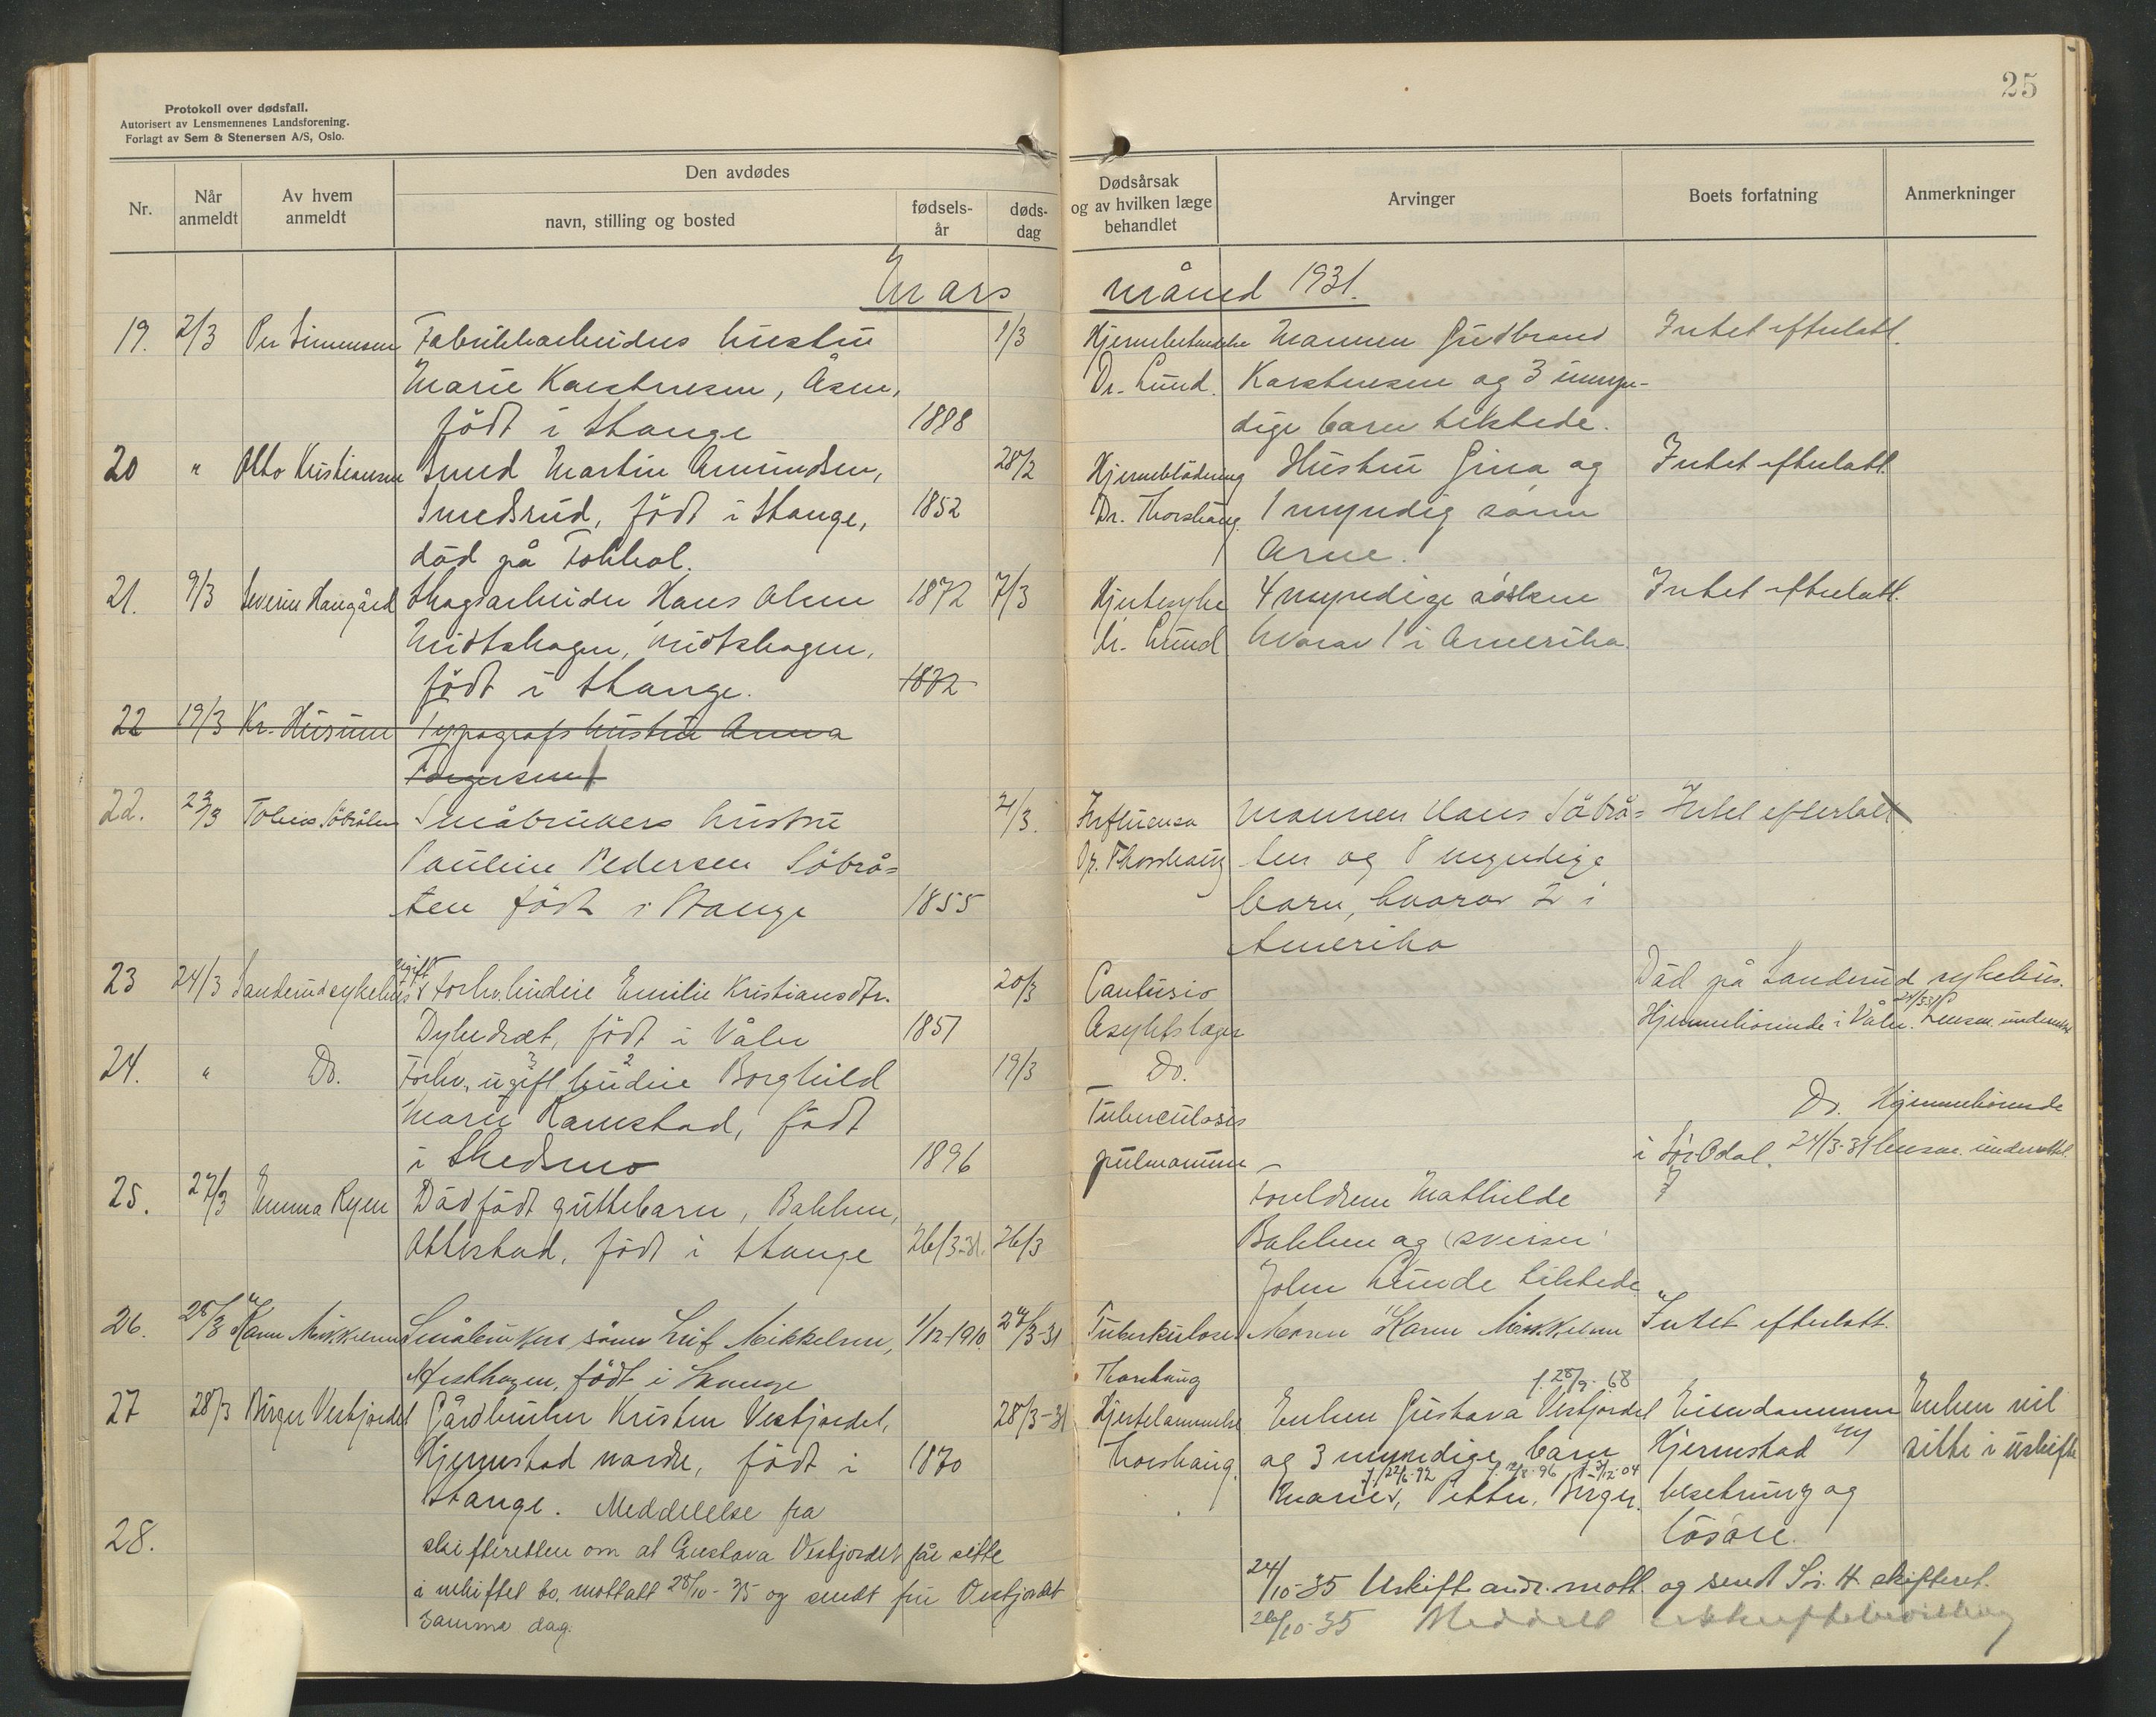 25
Protokoll over dødsfall.
Autorisert av Lensmennenes Landsforening.
Forlagt av Sem & Stenersen A/S, Oslo.
Nr.
Når anmeldt
Av hvem anmeldt
Den avdødes
navn, stilling og bosted
fødsels-år
døds-dag
Dødsårsak
og av hvilken læge
behandlet
Arvinger
Boets forfatning
Anmerkninger
Mars måned 1931.
19. 2/3 Per Simensen Fabrikkarbeiders hustru 1/3 Mannen Gudbrand Intet efterlatt.
Marie Karstensen, Åsen, Dr. Lund. Karstensen og 3 umyn-
født i Stange 1898 dige barn tilstede.
20 " Otto Kristiansen Smed Martin Amundsen, 28/2 Hjerneblødning Hustru Gina og Intet efterlatt.
Smedsrud, født i Stange, 1852 Dr. Thorshaug. 1 myndig sønn
død på Tokhol. Arne.
21. 9/3 Severin Haugård Skogsarbeider Hans Olsen 1872 7/3 Hjertesyke 4 myndige søsken Intet efterlatt.
Midtskogen, Midtskogen, Dr. Lund hvorav 1 i Amerika.
født i Stange. 1872
22 19/3 Kr. Husum Typografs hustru Anna
Torgersen
22. 23/3 Tobias Söbråten Småbrukers hustru 21/3. Influensa Mannen Hans Söbrå= Intet efterlatt
Pauline Pedersen Söbrå= Dr. Thorshaug ten og 8 myndige
ten født i Stange 1855 barn, hvorav 2 i
Amerika
23 24/3 Sanderud sykehus ugift Forhv. budeie Emilie Kristiansdtr. 20/3 Contusio Død på Sanderud sykehus.
Dyhedræt, født i Våler 1857 Asyllæger Hjemmehörende i Våler. 24/3-31 Lensm. underrettet
24. " Do. Forhv. ugift budeie Borghild 19/3 Do.
Marie Ramstad, født Tuberculosis Do. Hjemmehörende
i Skedsmo 1896 pulmonum i Sör-Odal. 24/3-31 lensm. underrettet.
25. 27/3 Emma Ryen Dødfødt guttebarn, Bakken, Foreldrene Mathilde ?
Ottestad, født i Stange 26/3-31. 26/3 Bakken og sveiser
John Lunde tilstede
26. 28/3 Karen Mikkelsen Småbrukers sønn Leif Mikkelsen, 1/12-1910. 27/3-31 Tuberkulose Moren Karen Mikkelsen Intet efterlatt.
født i Stange Thorshaug
f. 28/9-68
27 28/3 Birger Vestjordet Gårdbruker Kristen Vestjordet, 28/3-31 Hjertelammelse Enken Gustava Vestjordet Eiendommen Enken vil
Hjermstad nordre, født i 1870 Thorshaug. og 3 myndige barn Hjermstad m/ sitte i uskifte
f. 22/6-92 f. 12/8-96 f. 3/12-04
Stange. Meddelelse fra Marie, Petter, Birger. besetning og
løsøre.
28. skifteretten om at Gustava Vestjordet får sitte
i uskiftet bo, mottatt 28/10-35 og sendt fru Vestjordet
samme dag.
24/10-35 Uskifteandr. mott. og sendt S.ö. H. skifteret.
26/10-35 Meddelt uskiftebevilling